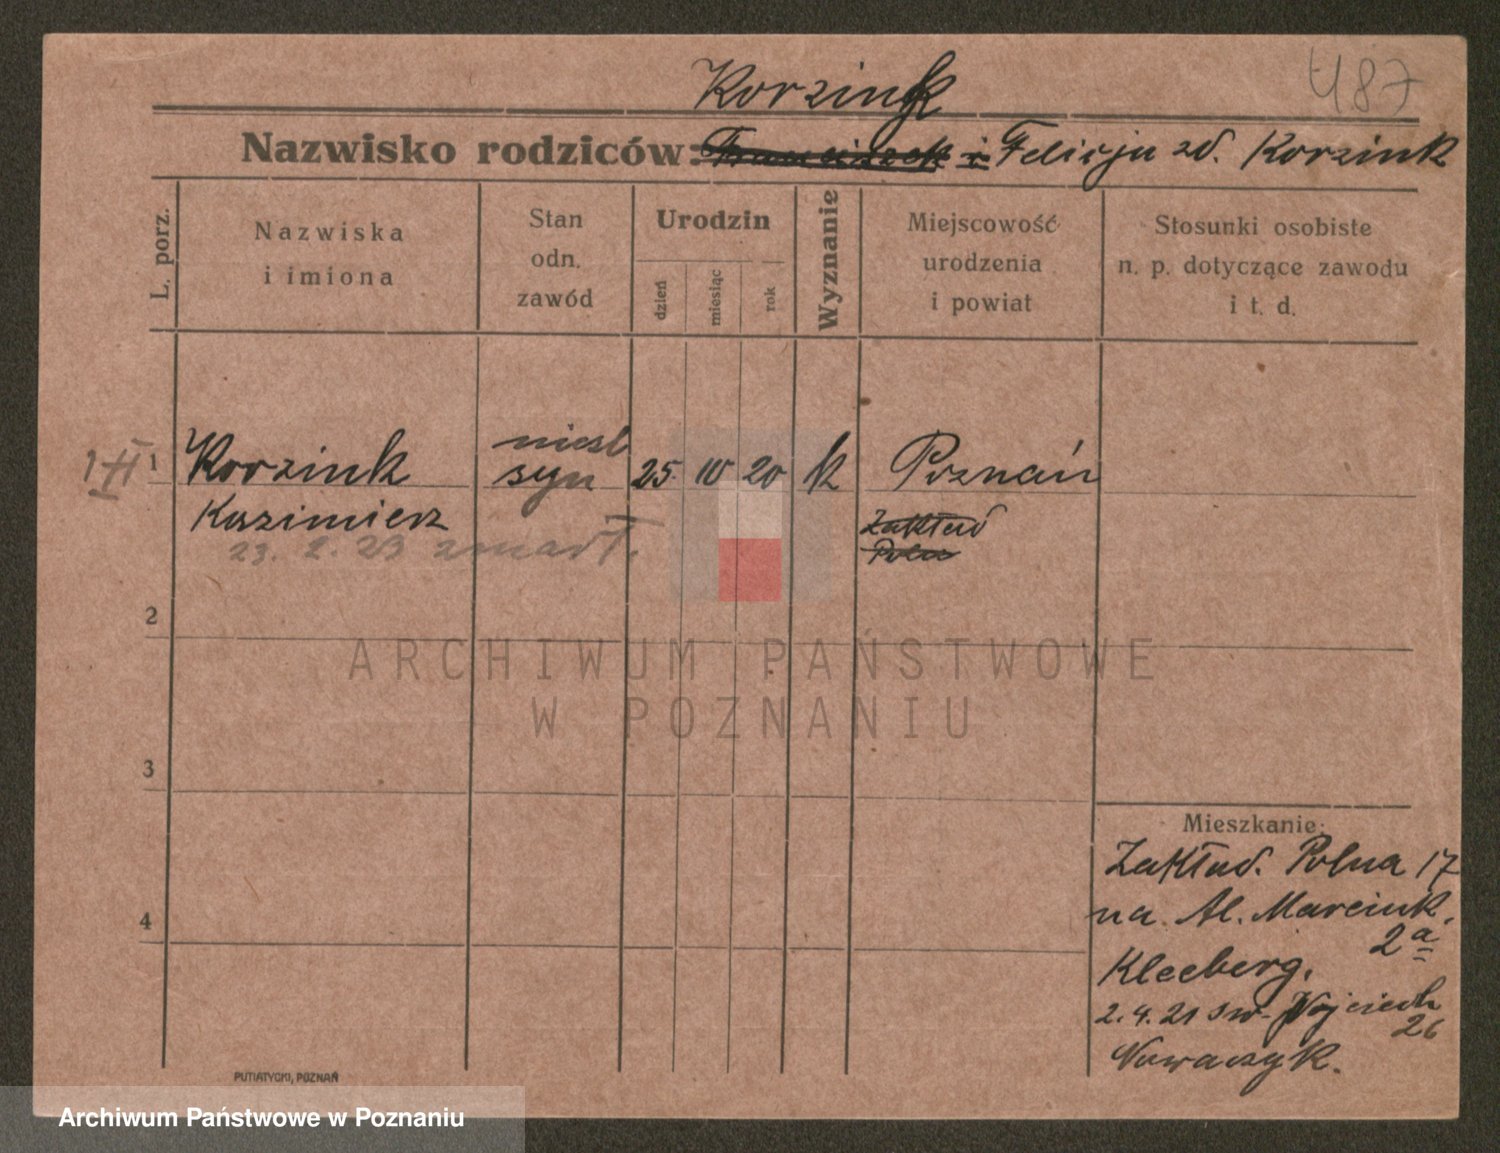 Korzink
487
Nazwisko rodziców: Franciszek i Felicja zd. Korzink
L. porz.
Nazwiska
i imiona
Stan
odn.
zawód
Urodzin
dzień
miesiąc
rok
Wyznanie
Miejscowość
urodzenia
i powiat
Stosunki osobiste
n. p. dotyczące zawodu
i t. d.
1 Korzink
Kazimierz
23. 2. 23 zmarł.
nieśl
syn
25. 10 20 k Poznań
Zakład
Polna
2
3
4
ARCHIWUM PAŃSTWOWE
W POZNANIU
Mieszkanie:
Zakład. Polna 17
na Al. Marcink.
2a
Kleeberg.
2.4.21 św. Wojciech
26
Nowaczyk.
PUTIATYCKI, POZNAŃ
Archiwum Państwowe w Poznaniu